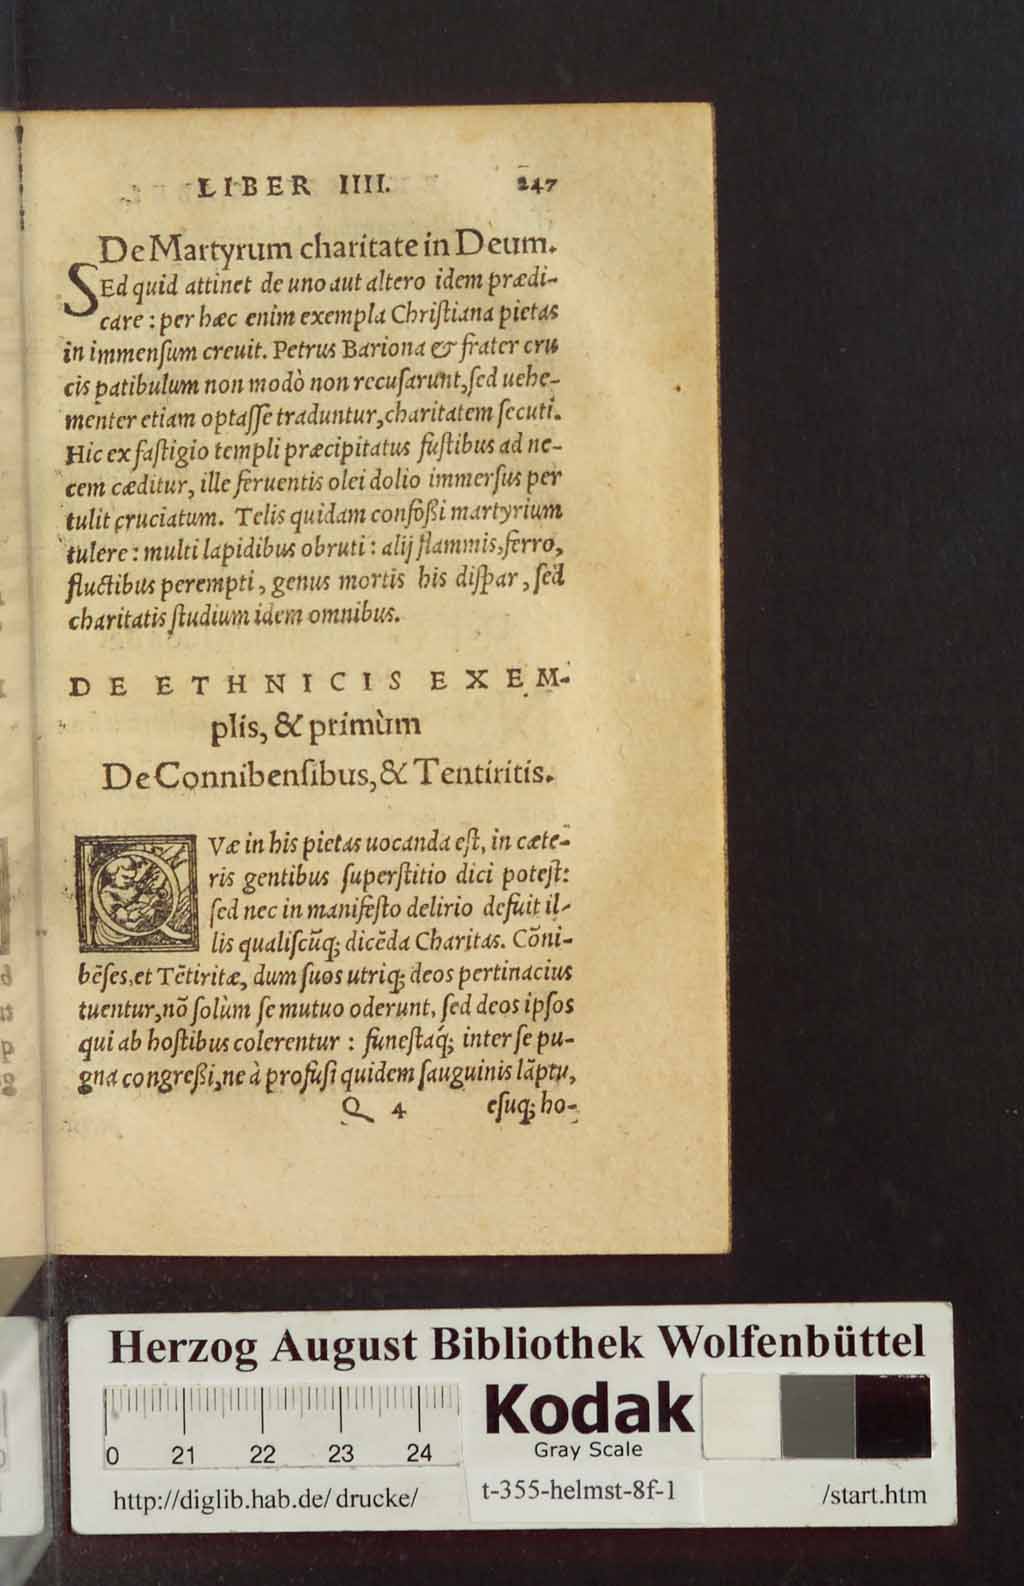 LIBER IIII. 247
De Martyrum charitate in Deum.
SEd quid attinet de uno aut altero idem prædi-
care : per hæc enim exempla Chriſtiana pietas
in immenſum creuit. Petrus Bariona & frater cru
cis patibulum non modò non recuſarunt, ſed uehe-
menter etiam optaſſe traduntur, charitatem ſecuti.
Hic ex faſtigio templi præcipitatus fuſtibus ad ne-
cem cæditur, ille feruentis olei dolio immerſus per
tulit cruciatum. Telis quidam confoßi martyrium
tulere : multi lapidibus obruti : alij flammis, ferro,
fluctibus perempti, genus mortis his diſpar, ſed
charitatis ſtudium idem omnibus.
DE ETHNICIS EXEM-
plis, & primùm
De Connibenſibus, & Tentiritis.
QVæ in his pietas uocanda eſt, in cæte-
ris gentibus ſuperſtitio dici poteſt:
ſed nec in manifeſto delirio defuit il-
lis qualiſcũq; dicẽda Charitas. Cõni-
bẽſes, et Tẽtiritæ, dum ſuos utriq; deos pertinacius
tuentur, nõ ſolùm ſe mutuo oderunt, ſed deos ipſos
qui ab hoſtibus colerentur : funeſtáq; inter ſe pu-
gna congreßi, ne à profuſi quidem ſauguinis lãptu,
Q 4 eſuq; ho-
Herzog August Bibliothek Wolfenbüttel
0 21 22 23 24
Kodak
Gray Scale
http://diglib.hab.de/drucke/ t-355-helmst-8f-1 /start.htm